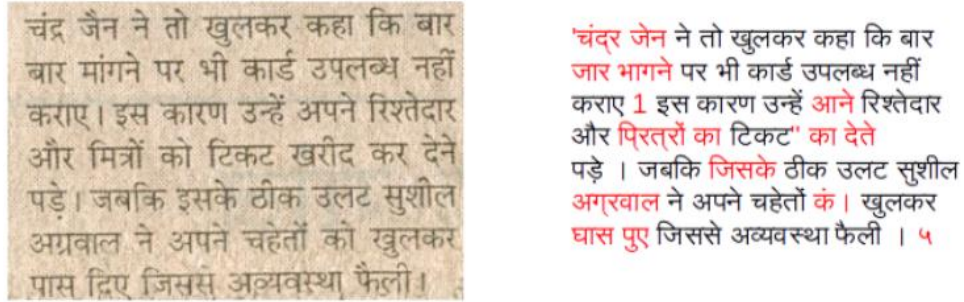 चंद्र जैन ने तो खुलकर कहा कि बार
बार मांगने पर भी कार्ड उपलब्ध नहीं
कराए। इस कारण उन्हें अपने रिश्तेदार
और मित्रों को टिकट खरीद कर देने
पड़े। जबकि इसके ठीक उलट सुशील
अग्रवाल ने अपने चहेतों को खुलकर
पास दिए जिससे अव्यवस्था फैली।
'चंद्र जेन ने तो खुलकर कहा कि बार
जार भागने पर भी कार्ड उपलब्ध नहीं
कराए 1 इस कारण उन्हें आने रिश्तेदार
और प्रित्रों का टिकट" का देते
पड़े । जबकि जिसके ठीक उलट सुशील
अग्रवाल ने अपने चहेतों कं। खुलकर
घास पुए जिससे अव्यवस्था फैली । ५